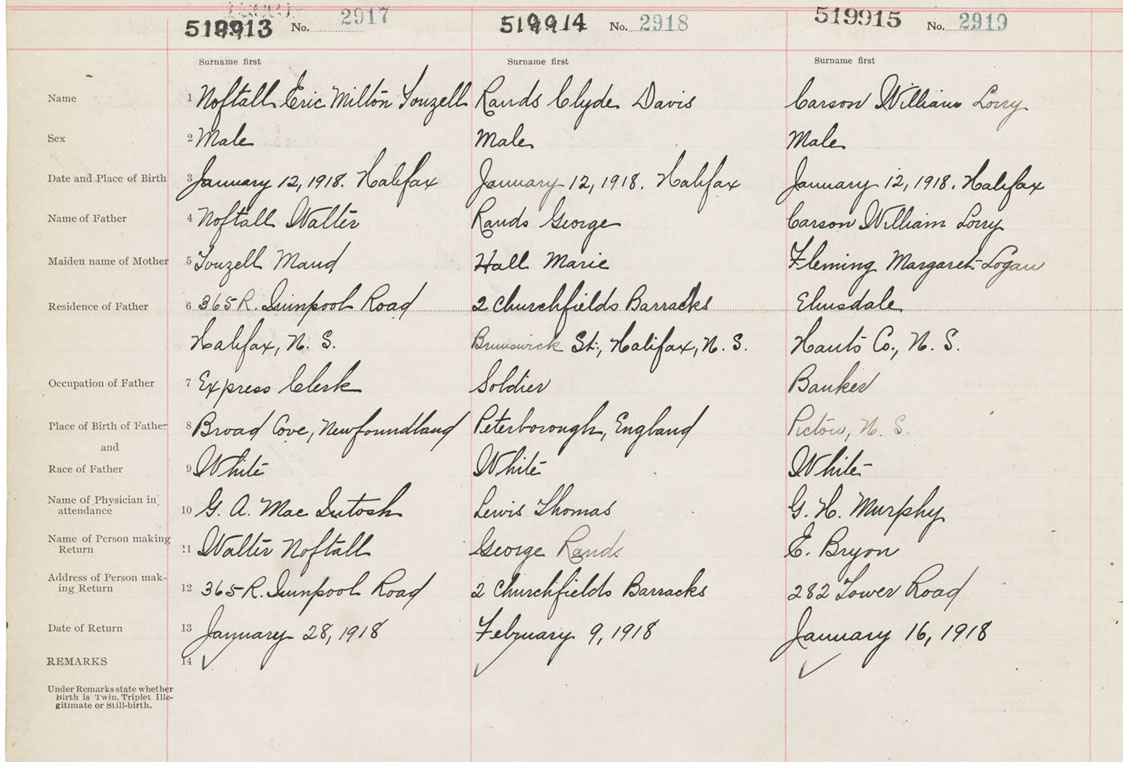 519913 No. 2917 519914 No. 2918 519915 No. 2919
Surname first Surname first Surname first
Name 1 Noftall Eric Milton Touzell Rands Clyde Davis Carson William Lorry
Sex 2 Male Male Male
Date and Place of Birth 3 January 12, 1918. Halifax January 12, 1918. Halifax January 12, 1918. Halifax
Name of Father 4 Noftall Walter Rands George Carson William Lorry
Maiden name of Mother 5 Touzell Maud Hall Marie Fleming Margaret Logan
Residence of Father 6 365 R. Quinpool Road 2 Churchfields Barracks Elmsdale
Halifax, N. S. Brunswick St., Halifax, N. S. Hants Co., N. S.
Occupation of Father 7 Express Clerk Soldier Banker
Place of Birth of Father 8 Broad Cove, Newfoundland Peterborough, England Pictou, N. S.
and
Race of Father 9 White White White
Name of Physician in attendance 10 G. A. Mac Intosh Lewis Thomas G. H. Murphy
Name of Person making Return 11 Walter Noftall George Rands E. Bryon
Address of Person making Return 12 365 R. Quinpool Road 2 Churchfields Barracks 282 Tower Road
Date of Return 13 January 28, 1918 February 9, 1918 January 16, 1918
REMARKS 14
Under Remarks state whether
Birth is Twin, Triplet Ille-
gitimate or Still-birth.